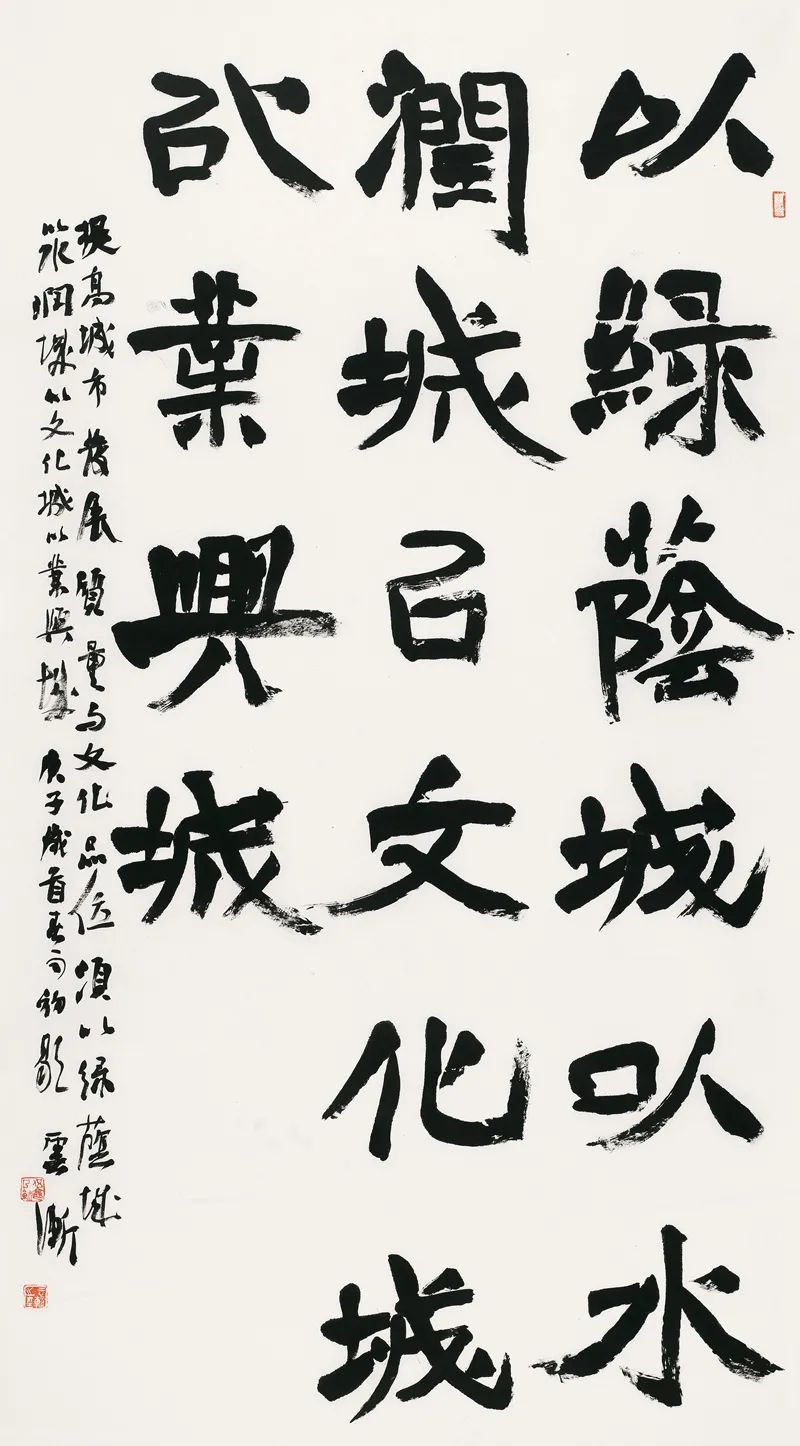 以綠蔭城以水
潤城㠯文化城
以業興城
提高城市發展質量与文化品位須以綠蔭城
以水潤城以文化城以業興城 庚子歲首 題 雲